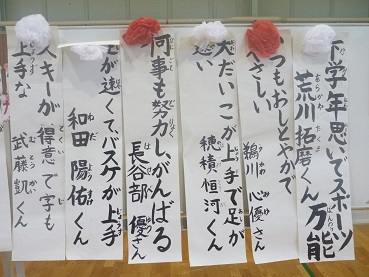 下学年思いでスポーツ万能
荒川 拓磨くん
つもおしとやかで
やさしい 鵜川 心優さん
大だいこが上手で足が
速い 穂積 恒河くん
何事も努力し、がんばる
長谷部 優さん
が速くてバスケが上手
和田 陽佑くん
スキーが得意で字も
上手な 武藤 凱くん